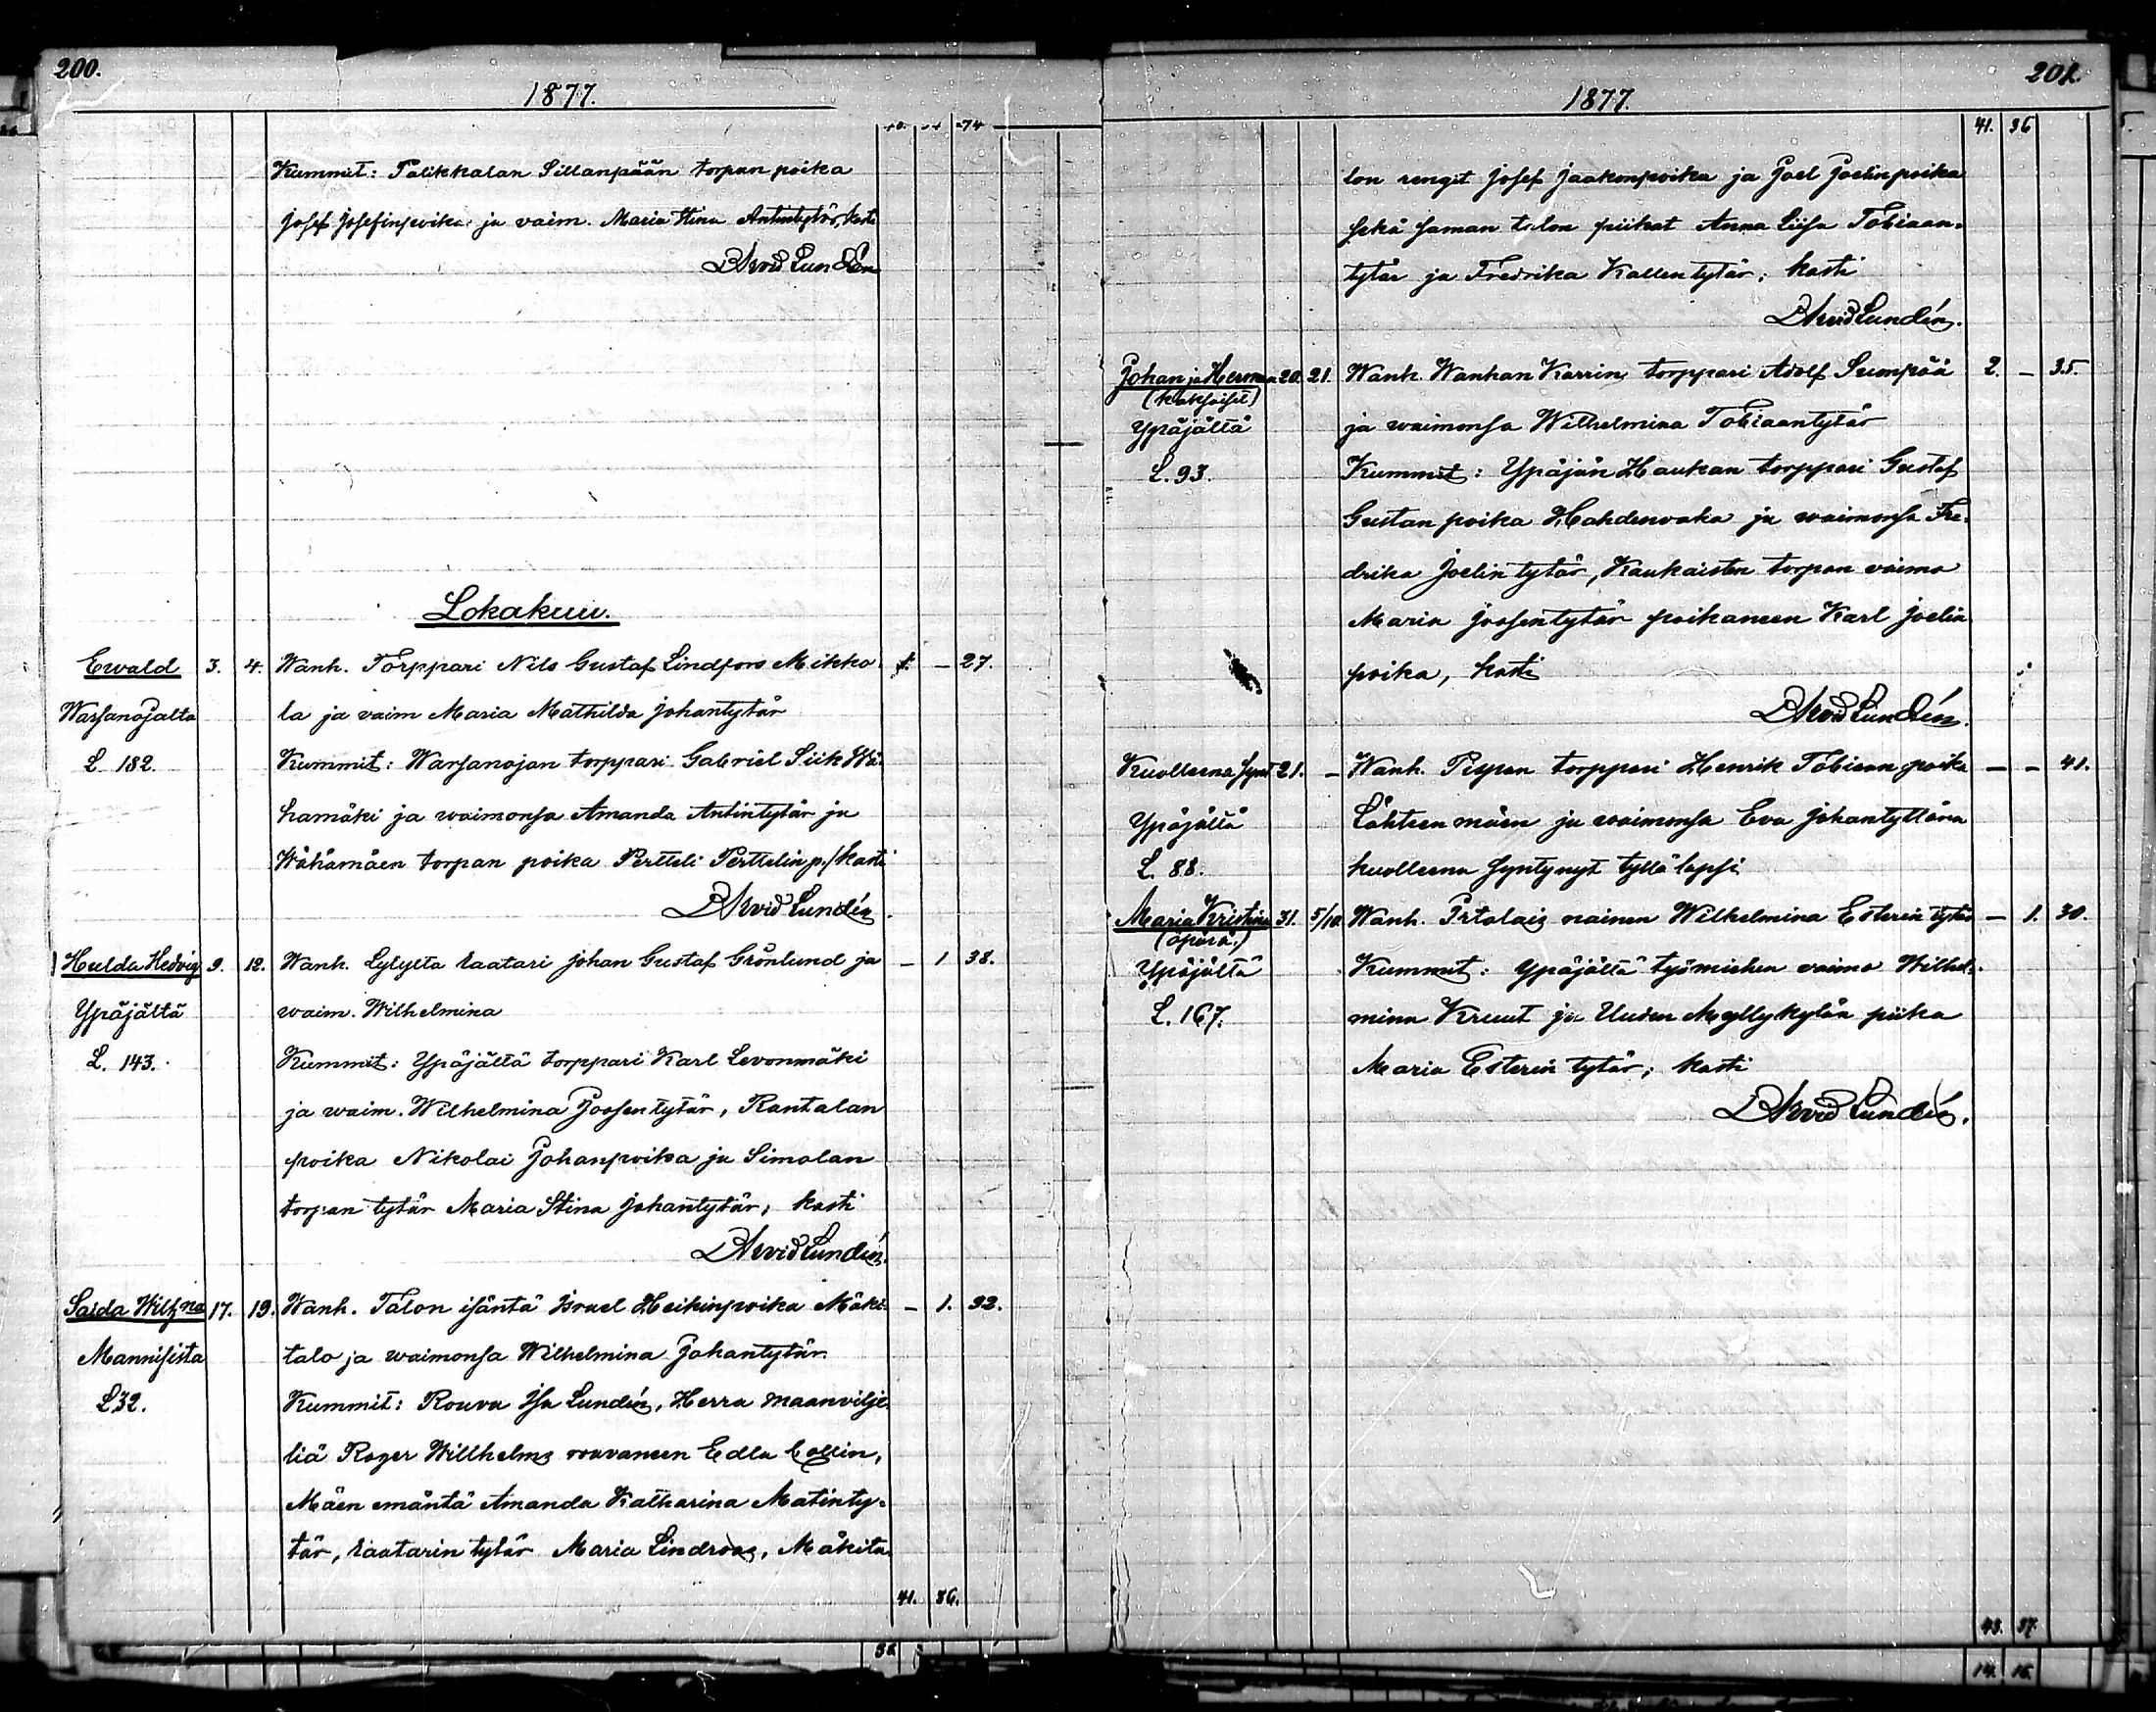 200.
1877.
Kummit: Palikkalan Sillanpään torpan poika
Josef Josefinpoika ja vaim. Maria Stina Antintytär, kasti
B Arvid Lundén
Lokakuu.
Ewald 3. 4. Wanh. Torppari Nils Gustaf Lindfors Mikko 1. — 27.
Warsanojalta la ja vaim Maria Mathilda Johantytär
L 182. Kummit: Warsanojan torppari Gabriel Siik Wä-
hamäki ja waimonsa Amanda Antintytär ja
Wähämäen torpan poika Pertteli Perttelin p./ kasti
B Arvid Lundén.
Hulda Hedvig 9. 12. Wanh. Lylylta raatari Johan Gustaf Grönlund ja — 1 38.
Ypäjältä waim. Wilhelmina
L. 143. Kummit: Ypäjältä torppari Karl Levonmäki
ja waim. Wilhelmina Joosentytär, Rantalan
poika Nikolai Johanpoika ja Simolan
torpan tytär Maria Stina Johantytär; kasti
B Arvid Lundén.
Saida Wilhna 17. 19. Wanh. Talon isäntä Israel Heikinpoika Mäki- — 1. 32.
Mannisista talo ja waimonsa Wilhelmina Johantytär.
L 32. Kummit: Rouva Isa Lundén, Herra maanvilje-
liä Roger Willhelms rouvaneen Edla Collin,
Mäen emäntä Amanda Katharina Matinty-
tär, raatarin tytär Maria Lindroos, Mäkita-
41. 36.
201.
1877.
41. 36
lon rengit Josef Jaakonpoika ja Joel Joelinpoika
sekä saman talon piikat Anna Liisa Tobiaan-
tytär ja Fredrika Kallentytär; kasti
B Arvid Lundén.
Johan ja Herman 20. 21. Wanh. Wanhan Karrin torppari Adolf Suonpää 2. — 35.
(kaksoiset)
Ypäjältä ja waimonsa Wilhelmina Tobiaantytär
L. 93. Kummit: Ypäjän Haukan torppari Gustaf
Gustan poika Hahdenvaka ja waimonsa Fre-
drika Joelin tytär, Kaukaisten torpan vaimo
Maria Joosentytär poikaneen Karl Joelin
poika, kasti
B Arvid Lundén.
Kuolleena synt 21. — Wanh. Pispan torppari Henrik Tobiaan poika — — 41.
Ypäjältä Lähteenmäen ja waimonsa Eva Johantyttären
L. 88. kuolleena syntynyt tyttö lapsi
Maria Kristina 31. 5/10. Wanh. Irtolais nainen Wilhelmina Esterin tytär — 1. 30.
(äpärä.)
Ypäjältä Kummit: Ypäjältä työmiehen vaimo Wilhel-
L. 167. mina Kruut ja Uuden Myllykylän piika
Maria Esterin tytär; kasti
B Arvid Lundén.
43. 37.
14. 16.